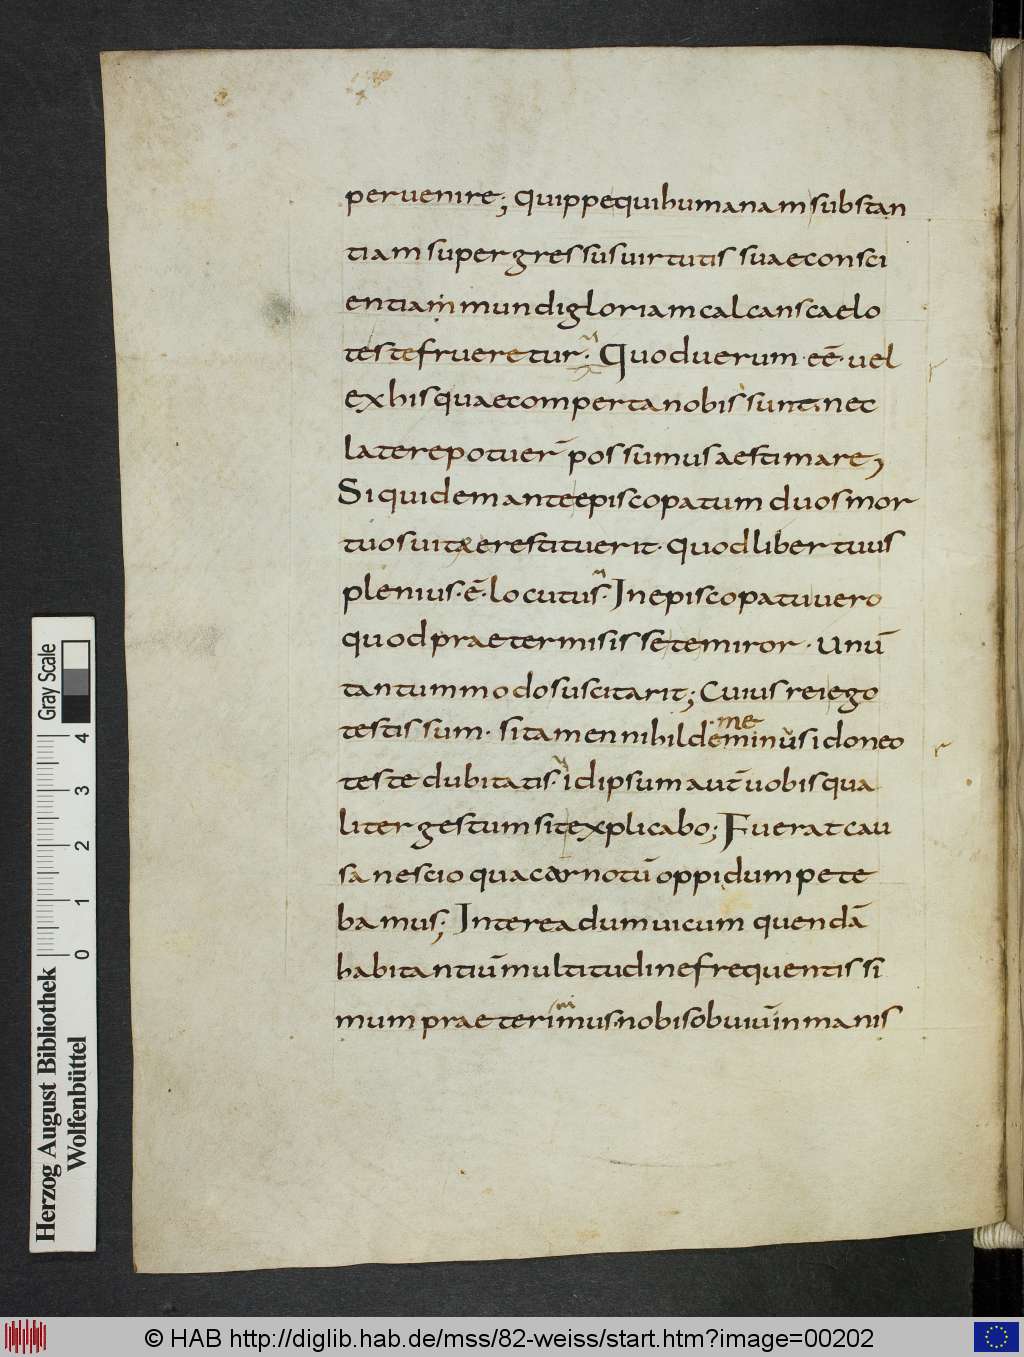 peruenire; Quippe qui humanam substan
tiam supergressus uirtutis suae consci
entiam mundi gloriam calcans caelo
teste frueretur. Quod uerum eē uel
ex his quae comperta nobis sunt. nec
latere potuer̄ possumus aestimare,
Siquidem ante episcopatum duos mor
tuos uitae restituerit. quod liber tuus
plenius. ē. locutus. In episcopatu uero
quod praetermisisse te miror. Unū
tantummodo suscitarit; Cuius rei ego
testis sum. si tamen nihil de me minus idoneo
teste dubitatis. id ipsum aut̄ uobis qua
liter gestum sit explicabo; Fuerat cau
sa nescio qua carnotū oppidum pete
bamus; Interea dum uicum quendā
habitantiū multitudine frequentissi
mum praeterimus. nobis obuiū inmanis
Gray Scale
4
3
2
1
0
Herzog August Bibliothek
Wolfenbüttel
© HAB http://diglib.hab.de/mss/82-weiss/start.htm?image=00202